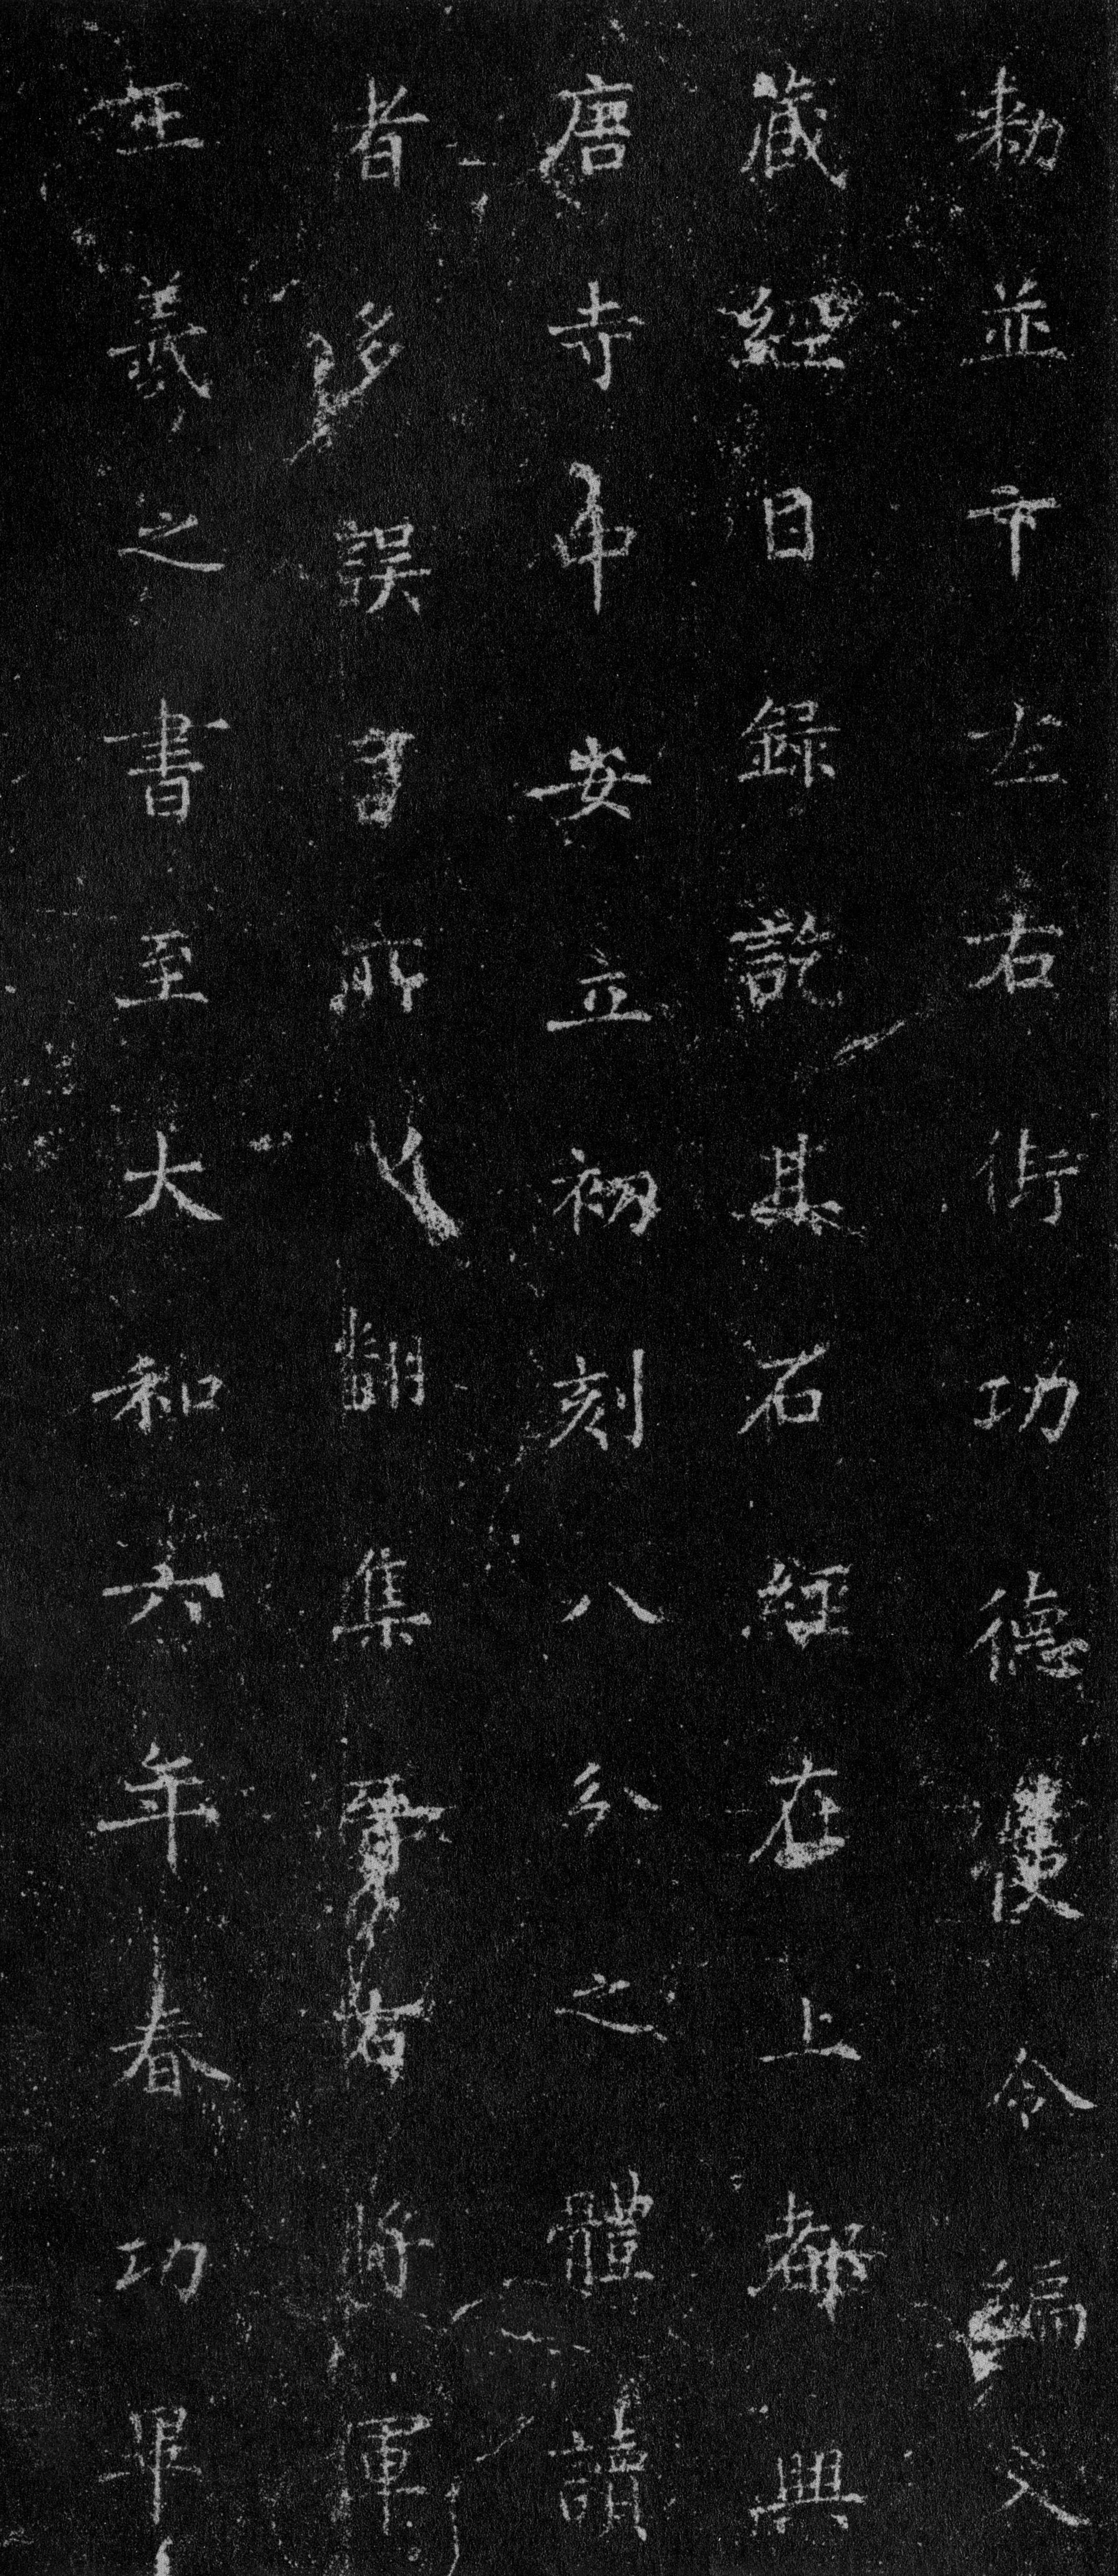 勅並市左右街功德使令編入
藏經目録訖其石經在上都興
唐寺中安立初刻八分之體讀
者多誤習所以翻集晉右将軍
王羲之書至大和六年春功畢